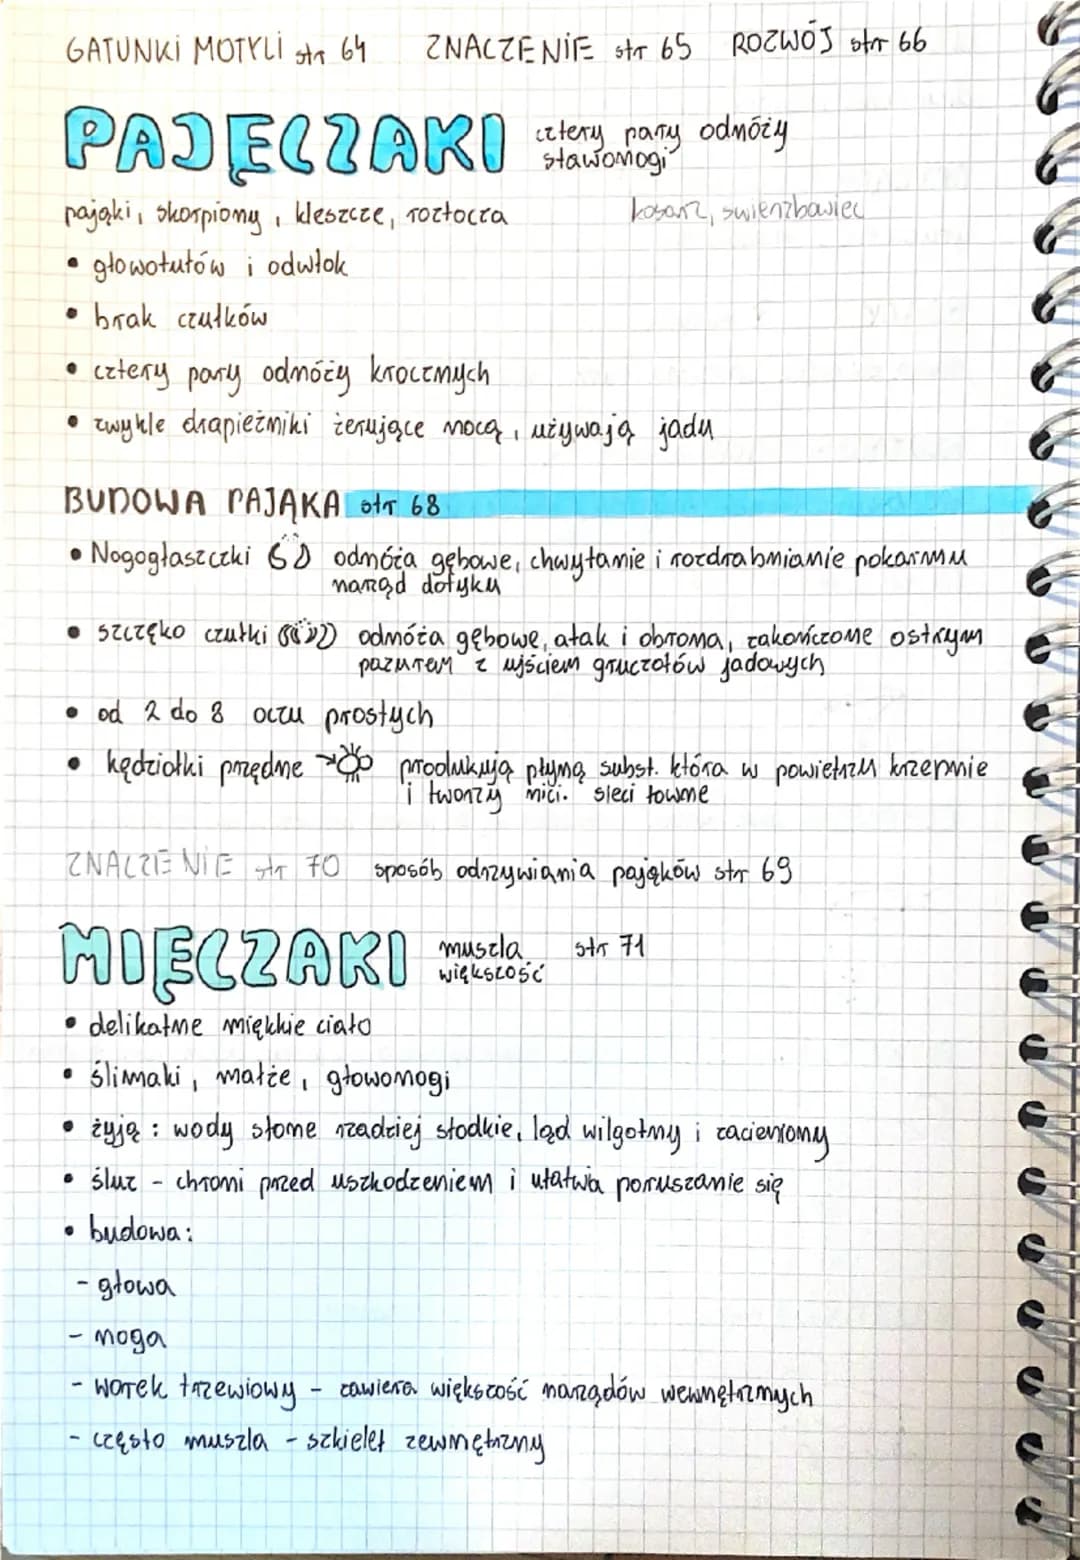 GATUNKI MOTYLI str 64 ZNACZENIE str 65 ROZWÓJ str 66
PAJĘCZAKI cztery pary odnóży
stawonogi
pająki, skorpiony, kleszcze, roztocza kosarz, świerzbowiec
• głowotułów i odwłok
• brak czułków
• cztery pary odnóży krocznych
• zwykle drapieżniki żerujące nocą, używają jadu
BUDOWA PAJĄKA str 68
• Nogogłaszczki odnóża gębowe, chwytanie i rozdrabnianie pokarmu
narząd dotyku
• szczęko czułki odnóża gębowe, atak i obrona, zakończone ostrym
pazurem z ujściem gruczołów jadowych
• od 2 do 8 oczu prostych
• kędziołki przędne → produkują płyną subst. która w powietrzu krzepnie
i tworzy nici. sieci łowne
ZNACZENIE str 70 sposób odrzywiania pająków str 69
MIĘCZAKI muszla str 71
większość
• delikatne miękkie ciało
• ślimaki, małże, głowonogi
• żyją : wody słone rzadziej słodkie, ląd wilgotny i zacieniony
• śluz - chroni przed uszkodzeniem i ułatwia poruszanie się
• budowa :
- głowa
- noga
- worek trzewiowy - zawiera większość narządów wewnętrznych
- często muszla - szkielet zewnętrzny